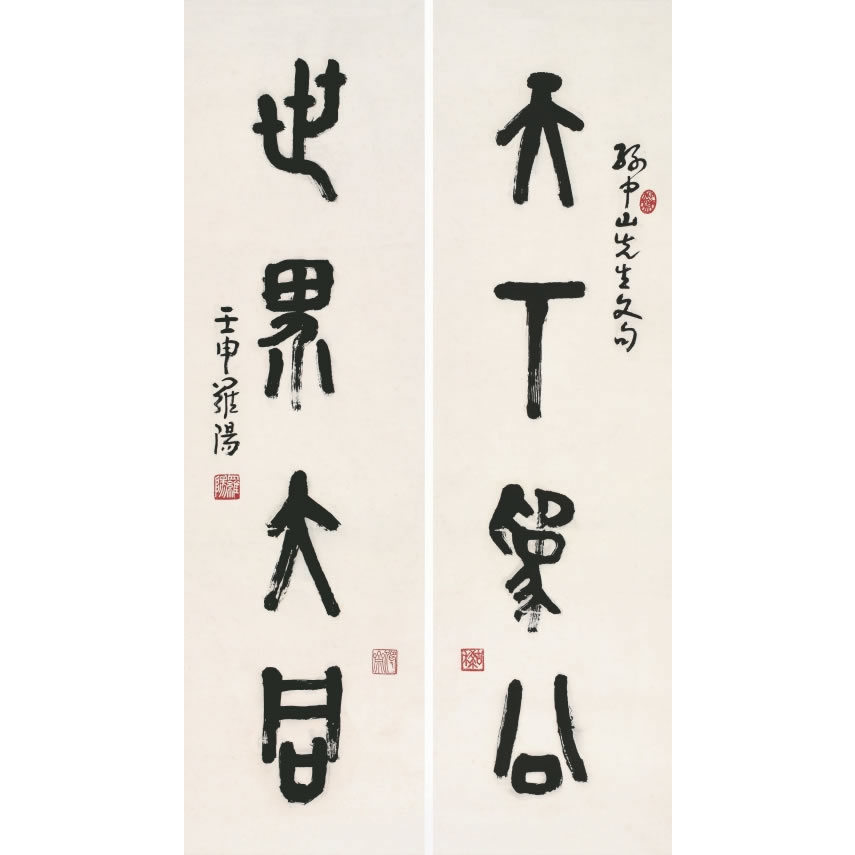 孫中山先生文句
天下爲公
世界大同
壬申羅陽